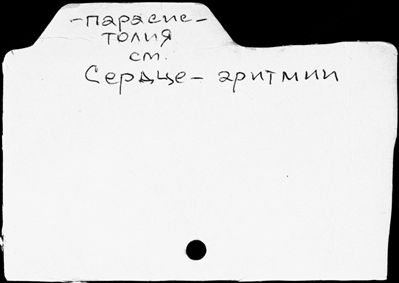 -парасис-
толия
см.
Сердце - аритмии